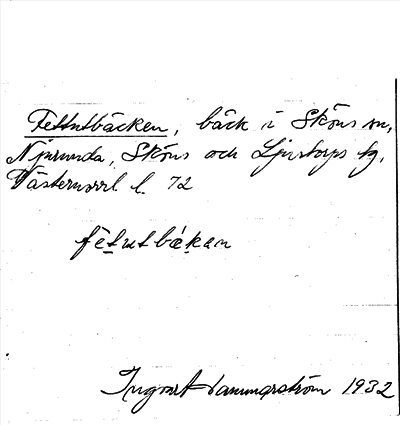 Fettutbäcken, bäck i Sköns sn,
Njurunda, Sköns och Ljustorps tg,
Västernorrl l. 72
fetutbäkan
Ingvart Hammarström 1932